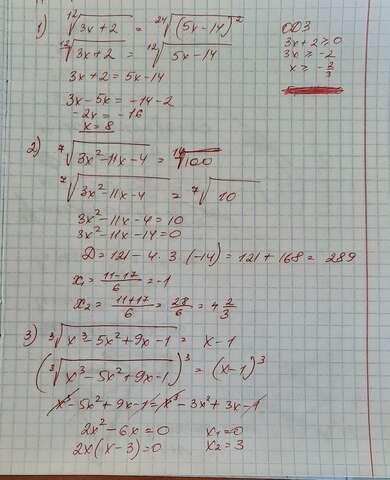 1) \sqrt[12]{3x+2} = \sqrt[24]{(5x-14)^2}
\sqrt[12]{3x+2} = \sqrt[12]{5x-14}
3x+2 = 5x-14
3x-5x = -14-2
-2x = -16
x = 8
ОДЗ
3x+2 ≥ 0
3x ≥ -2
x ≥ -\frac{2}{3}
2) \sqrt[7]{3x^2-11x-4} = \sqrt[14]{100}
\sqrt[7]{3x^2-11x-4} = \sqrt[7]{10}
3x^2-11x-4 = 10
3x^2-11x-14 = 0
D = 121-4·3·(-14) = 121+168 = 289
x_1 = \frac{11-17}{6} = -1
x_2 = \frac{11+17}{6} = \frac{28}{6} = 4\frac{2}{3}
3) \sqrt[3]{x^3-5x^2+9x-1} = x-1
(\sqrt[3]{x^3-5x^2+9x-1})^3 = (x-1)^3
x^3-5x^2+9x-1 = x^3-3x^2+3x-1
2x^2-6x = 0
2x(x-3) = 0
x_1 = 0
x_2 = 3